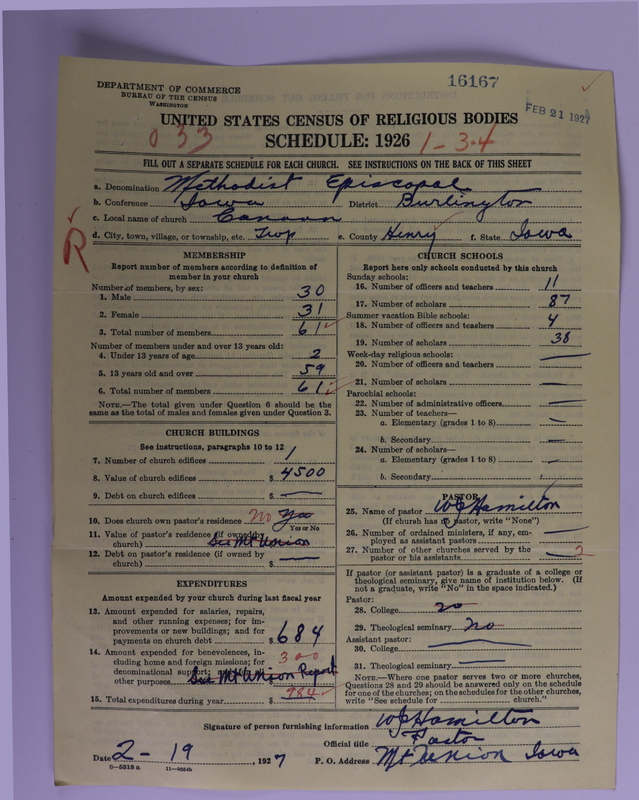 16167
DEPARTMENT OF COMMERCE
BUREAU OF THE CENSUS
WASHINGTON
FEB 21 1927
UNITED STATES CENSUS OF RELIGIOUS BODIES
033 SCHEDULE: 1926 1-3-4
FILL OUT A SEPARATE SCHEDULE FOR EACH CHURCH. SEE INSTRUCTIONS ON THE BACK OF THIS SHEET
a. Denomination Methodist Episcopal
b. Conference Iowa District Burlington
c. Local name of church Canaan
d. City, town, village, or township, etc. Twp e. County Henry f. State Iowa
R
MEMBERSHIP
Report number of members according to definition of
member in your church
Number of members, by sex:
1. Male 30
2. Female 31
3. Total number of members 61
Number of members under and over 13 years old:
4. Under 13 years of age 2
5. 13 years old and over 59
6. Total number of members 61
NOTE.—The total given under Question 6 should be the
same as the total of males and females given under Question 3.
CHURCH BUILDINGS
See instructions, paragraphs 10 to 12
7. Number of church edifices 1
8. Value of church edifices $ 4500
9. Debt on church edifices $ —
10. Does church own pastor's residence no Yes
Yes or No
11. Value of pastor's residence (if owned by
church) $ See Mt Union
12. Debt on pastor's residence (if owned by
church) $ —
EXPENDITURES
Amount expended by your church during last fiscal year
13. Amount expended for salaries, repairs,
and other running expenses; for im-
provements or new buildings; and for
payments on church debt $ 684
14. Amount expended for benevolences, in-
cluding home and foreign missions; for 300
denominational support;
other purposes See Mt Union Report
15. Total expenditures during year $ 984
CHURCH SCHOOLS
Report here only schools conducted by this church
Sunday schools:
16. Number of officers and teachers 11
17. Number of scholars 87
Summer vacation Bible schools:
18. Number of officers and teachers 4
19. Number of scholars 38
Week-day religious schools:
20. Number of officers and teachers —
21. Number of scholars —
Parochial schools:
22. Number of administrative officers —
23. Number of teachers—
a. Elementary (grades 1 to 8) —
b. Secondary —
24. Number of scholars—
a. Elementary (grades 1 to 8) —
b. Secondary
PASTOR
25. Name of pastor W J Hamilton
(If church has no pastor, write "None")
26. Number of ordained ministers, if any, em-
ployed as assistant pastors —
27. Number of other churches served by the
pastor or his assistants 2
If pastor (or assistant pastor) is a graduate of a college or
theological seminary, give name of institution below. (If
not a graduate, write "No" in the space indicated.)
Pastor:
28. College no
29. Theological seminary no
Assistant pastor:
30. College —
31. Theological seminary —
NOTE.—Where one pastor serves two or more churches,
Questions 28 and 29 should be answered only on the schedule
for one of the churches; on the schedules for the other churches,
write "See schedule for church."
Signature of person furnishing information W J Hamilton
Official title Pastor
Date 2-19, 1927 P. O. Address Mt Union Iowa
6—5318 a 11—9554b